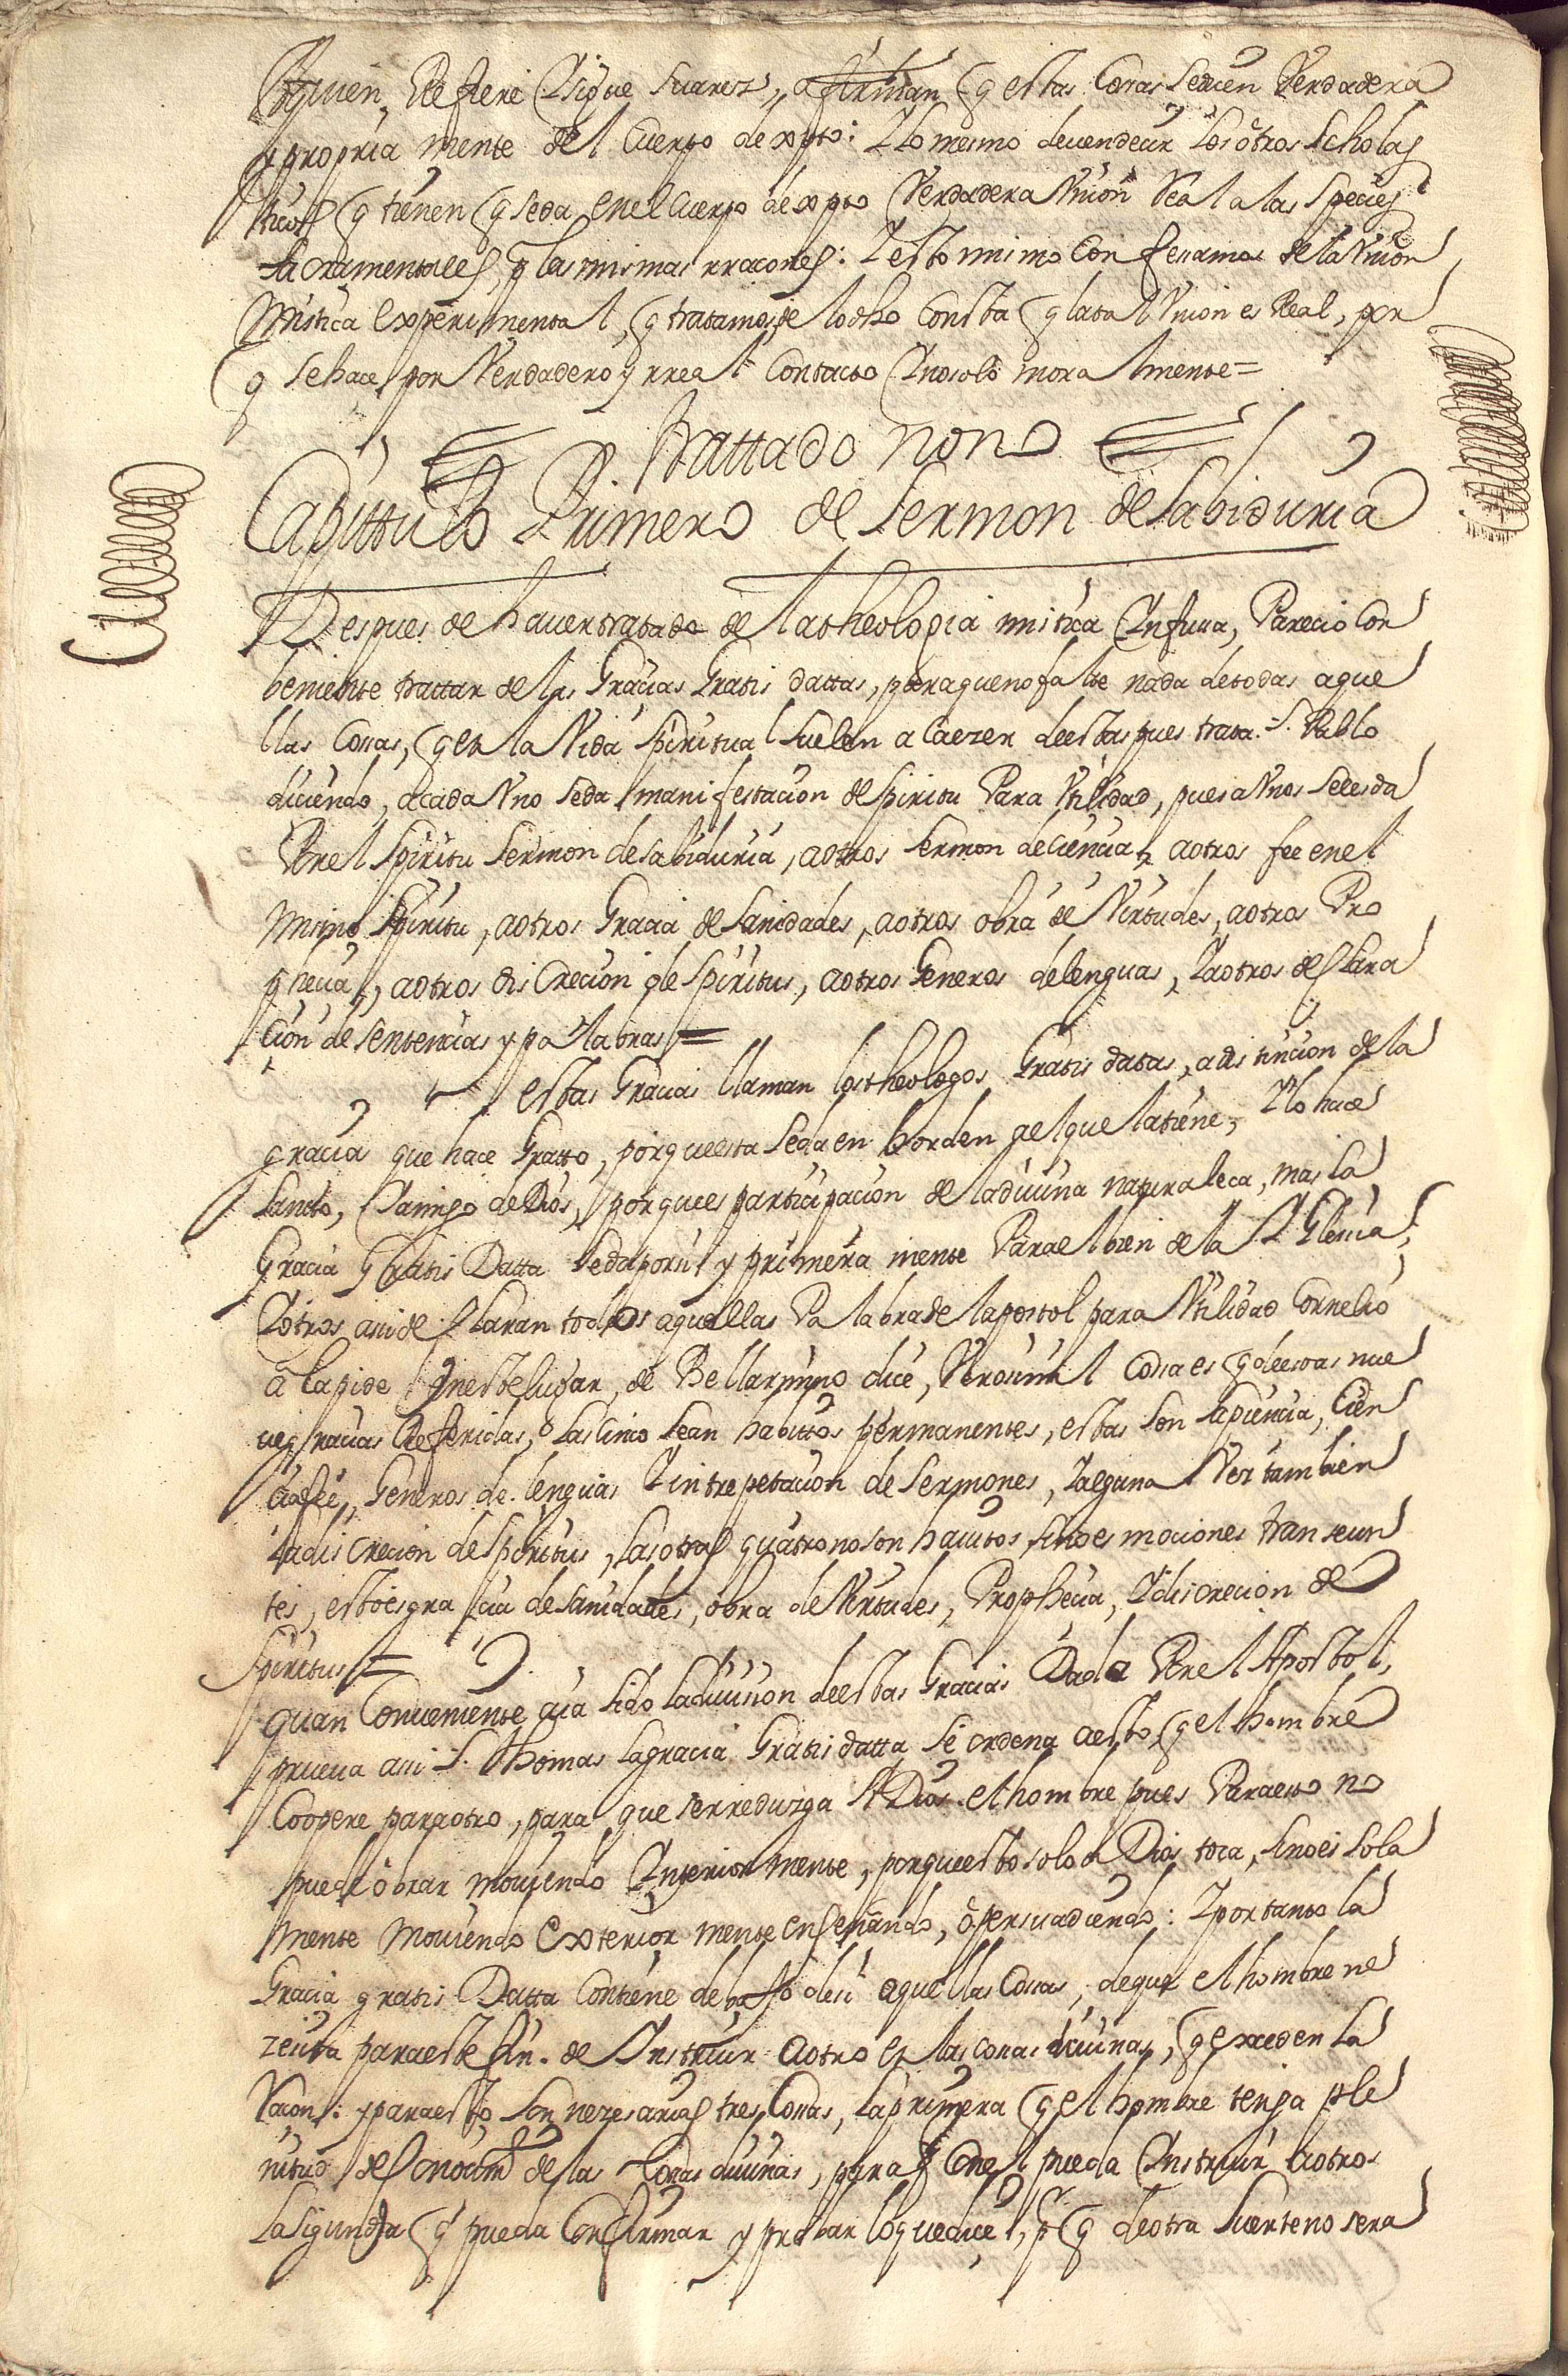 Aquien Refiere Y sigue Suarez, afirman q estas Cosas se dicen Verdadera
y propria mente del Cuerpo de xpto: Y lo mesmo deuen decir los otros Scholas
ticos q tienen q se da en el Cuerpo de xpto Verdadera Vnion Real a las species
sacramentales, y las mismas rraçones: Y esto mismo Confesamos de la Vnion
Mistica experimental, q tratamos, de lo dho Consta q la tal Vnion es Real, por
q se hace por Verdadero y rreal Contacto Y no solo moralmente =
Trattado nono
Capittulo Primero de Sermon de Sabiduria
Despues de hauer tratado de la theologia mistica Infusa, Parecio Con
beniente trattar de las Gracias Gratis dattas, para que no falte nada de todas aque
llas Cosas, q en la Vida Spiritual suelen acaezer de estas pues trata S. Pablo
diciendo, a cada Vno se da manifestacion de Spiritu Para Vtilidad, pues a Vnos se les da
Por el Spiritu Sermon de Sabiduria, a otros Sermon de Ciencia, a otros fee en el
mismo Spiritu, a otros Gracia de Sanidades, a otros obra de Virtudes, a otros Pro
phecia, a otros discrecion de Spiritus, a otros Generos de lenguas, Y a otros desclara
cion de sentencias y palabras =
estas Gracias llaman los theologos Gratis datas, a distincion de la
gracia que hace Gratto, porque esta se da en horden a el que la tiene, Y lo hace
Sancto, Y amigo de Dios, porque es participacion de la diuina naturaleca, mas la
Gracia Gratis Datta se da por si y primera mente Para el bien de la Yglesia,
Y otros asi desclaran todos aquellas Palabra del apostol para Vtilidad Cornelio
a lapide en este lugar, de Bellarmino dice, Verisimil Cosa es q de estas nue
ue gracias Referidas, las cinco sean habittos permanentes, estas son sapiencia, Cien
cia fee, Generos de lenguas Y intrepetacion de Sermones, Y alguna Vez tambien
la discrecion de Spiritus, las otras quatro no son hauitos sino es mociones transeun
tes, esto es gracia de sanidades, obra de Virtudes, Prophecia, Y discrecion de
Spiritus =
quan Conueniente aia sido la diuision de estas Gracias Dada Por el Apostol,
prueua asi S. Thomas la gracia Gratis datta se ordena a esto q el hombre
Coopere para otro, para que se rreduzga A Dios. el hombre pues Para esto no
puede obrar mouiendo Interior mente, porque esto solo a Dios toca, sino es sola
mente mouiendo exterior mente enseñando, o persuadiendo: Y por tanto la
Gracia gratis Datta Contiene debajo de si aquellas Cosas, de que el hombre ne
zesita para este fin. de Instruir a otro en las cosas diuinas, q exceden la
Raçon: y para esto son nezesarias tres Cosas, la primera q el hombre tenga ple
nitud del conocimto de las Cosas diuinas, para q Con el pueda Instruir a otros
la Sigunda q pueda Confirmar y probar lo que dice, pr q de otra suerte no sera